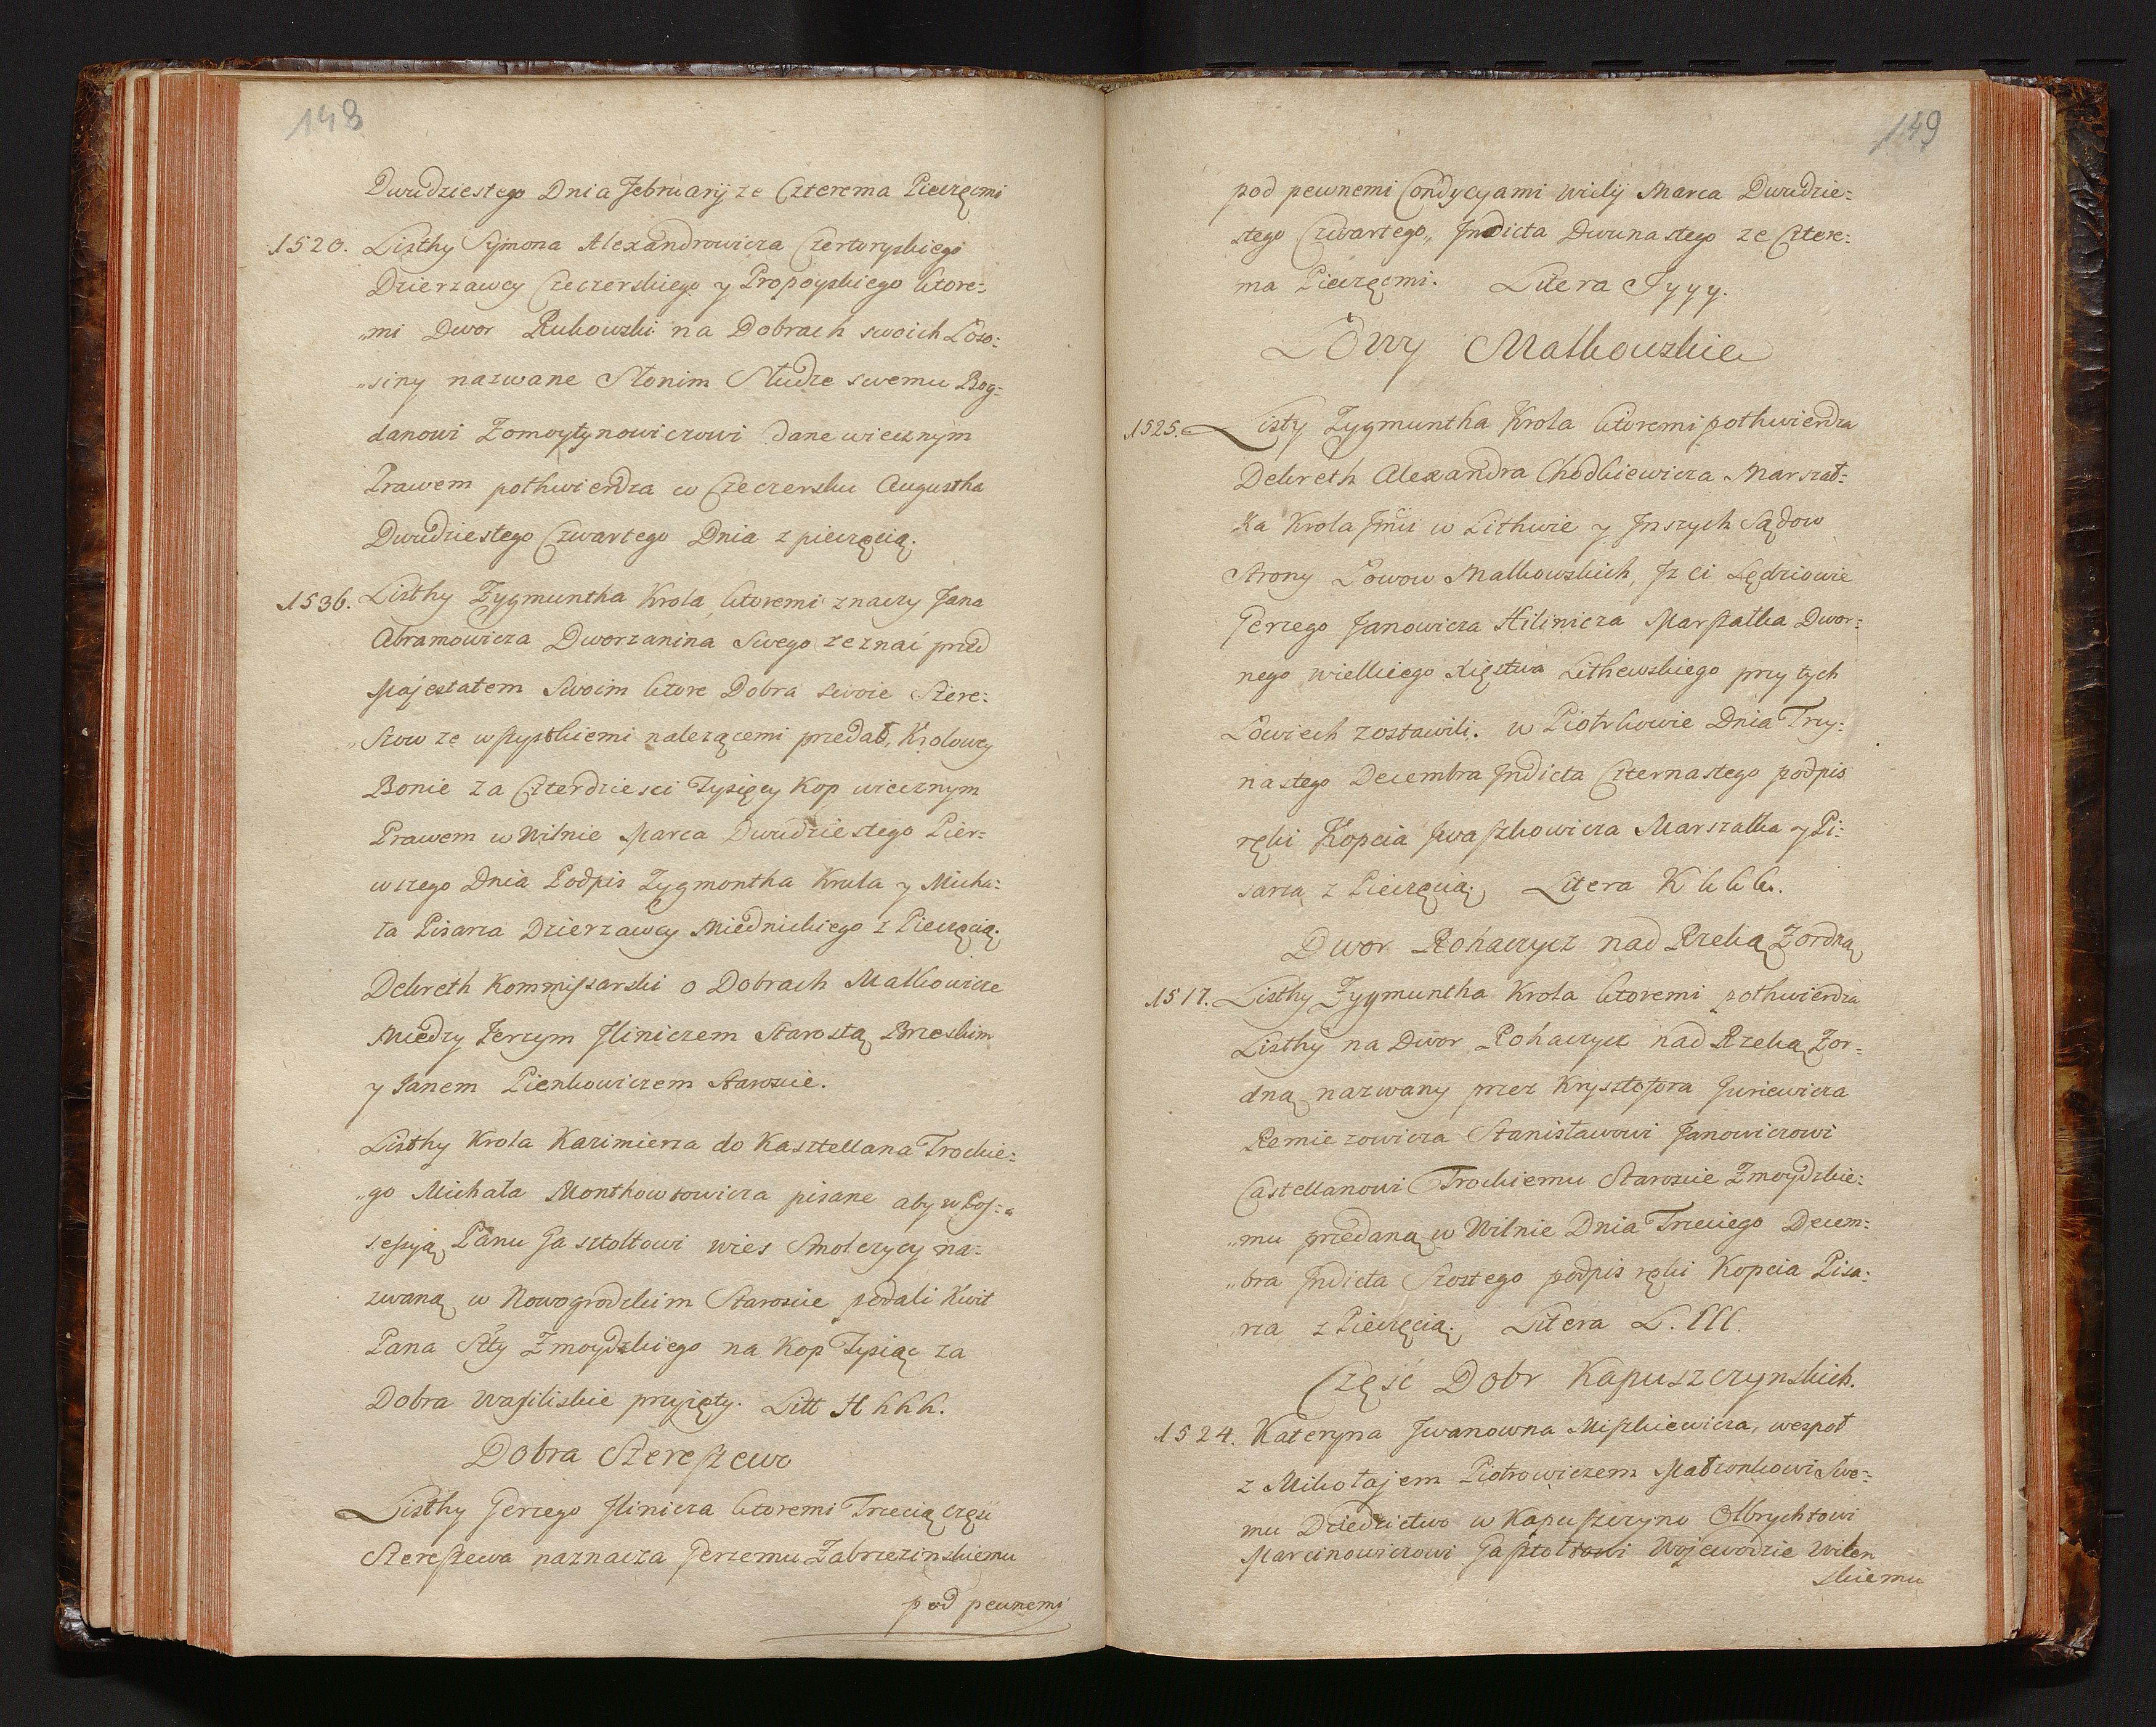 148
Dwudziestego Dnia Februarij ze Czterema Pieczęcmi
1520. Listhy Symona Alexandrowicza Czertoryskiego
Dzierzawcy Czeczerskiego y Propoyskiego ktore-
„mi Dwor Rukowski na Dobrach swoich Łoso-
„siny nazwane Słonim Słudze swemu Bog-
danowi Zomoytynowiczowi dane wiecznym
Prawem pothwierdza w Czeczersku Augustha
Dwudziestego Czwartego Dnia z pieczęcią.
1536. Listhy Zygmuntha Krola ktoremi znaczy Jana
Abramowicza Dworzanina Swego zeznać przed
Majestatem Swoim ktore Dobra swoie Szere-
„szow ze wszystkiemi nalezącemi przedał, Krolowey
Bonie za Czterdziesci Tysięcy Kop wiecznym
Prawem w Wilnie Marca Dwudziestego Pier-
wszego Dnia Podpis Zygmontha Krula y Micha-
ła Pisarza Dzierzawcy Miednickiego z Pieczęcią.
Dekreth Kommissarski o Dobrach Malkowicze
Miedzy Jerzym Iliniczem Starostą Brzeskim
y Janem Pienkowiczem Staroscie.
Listhy Krola Kazimierza do Kasztellana Trockie-
„go Michała Monthowtowicza pisane aby w Pos-
sessyą Panu Gasztołtowi wies Smolczycy na-
zwaną w Nowogrodzkim Staroscie podali Kwit
Pana Stty Zmoydzkiego na Kop Tysiąc za
Dobra Wasiliskie przyięty. Litt H h h h.
Dobra Szereszewo
Listhy Jerzego Ilinicza ktoremi Trzecią częsc
Szereszewa naznacza Jerzemu Zabrzezinskiemu
pod pewnemi
149
pod pewnemi Condycyami wielij Marca Dwudzie-
stego Czwartego, Indicta Dwunastego ze Cztere-
ma Pieczęcmi. Litera J y y y.
Łowy Malkowskie
1525. Listy Zygmuntha Krola ktoremi pothwierdza
Dekreth Alexandra Chodkiewicza Marszał-
ka Krola Jmći w Lithwie y Inszych Sądow
Strony Łowow Malkowskich, Iz ci Sędziowie
Jerzego Janowicza Hilinicza Marszałka Dwor-
nego wielkiego Xięstwa Lithewskiego przy tych
Łowiech zostawili. w Piotrkowie Dnia Trzy-
nastego Decembra Indicta Czternastego podpis
ręki Kopcia Iwaszkowicza Marszałka y Pi-
sarza z Pieczęcią. Litera K k k k.
Dwor Rohaczycz nad Rzeką Zordną
1517. Listhy Zygmuntha Krola ktoremi pothwierdza
Listhy na Dwor Rohaczycz nad Rzeką Zor-
dną nazwany przez Krysztofora Juriewicza
Remiezowicza Stanisławowi Janowiczowi
Castellanowi Trockiemu Staroscie Zmoydzkie-
„mu przedaną w Wilnie Dnia Trzeciego Decem-
„bra Indicta Szostego podpis ręki Kopcia Pisa-
rza z Pieczęcią. Litera L. l l l.
Częsć Dobr Kapuszczynskich.
1524. Kateryna Iwanowna Miszkiewicza, wespoł
z Mikołajem Piotrowiczem Małzonkowi Swe-
mu Dziedzictwo w Kapuszczyno Olbrychtowi
Marcinowiczowi Gasztołtowi Wojewodzie Wilen
skiemu